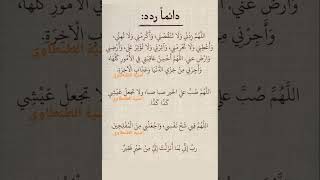 دائماً ردده:
اللَّهُمَّ زِدْنِي وَلَا تَنْقُصْنِي، وَأَكْرِمْنِي وَلَا تُهِنِّي،
وَأَعْطِنِي وَلَا تَحْرِمْنِي، وَآثِرْنِي وَلَا تُؤْثِرْ عَلَيَّ، وَأَرْضِنِي
وَارْضَ عَنِّي. اللَّهُمَّ أَحْسِنْ عَاقِبَتِي فِي الْأُمُورِ كُلِّهَا،
وَأَجِرْنِي مِنْ خِزْيِ الدُّنْيَا وَعَذَابِ الْآخِرَةِ.
اللَّهُمَّ صُبَّ عَلَيَّ الخير صبا صبا، ولا تَجْعَلْ عَيْشِي
كَدًّا كَدًّا.
اللَّهُمَّ قِنِي شُحَّ نَفْسِي، وَاجْعَلْنِي مِنَ الْمُفْلِحِينَ.
رَبِّ إِنِّي لِمَا أَنْزَلْتَ إِلَيَّ مِنْ خَيْرٍ فَقِيرٌ